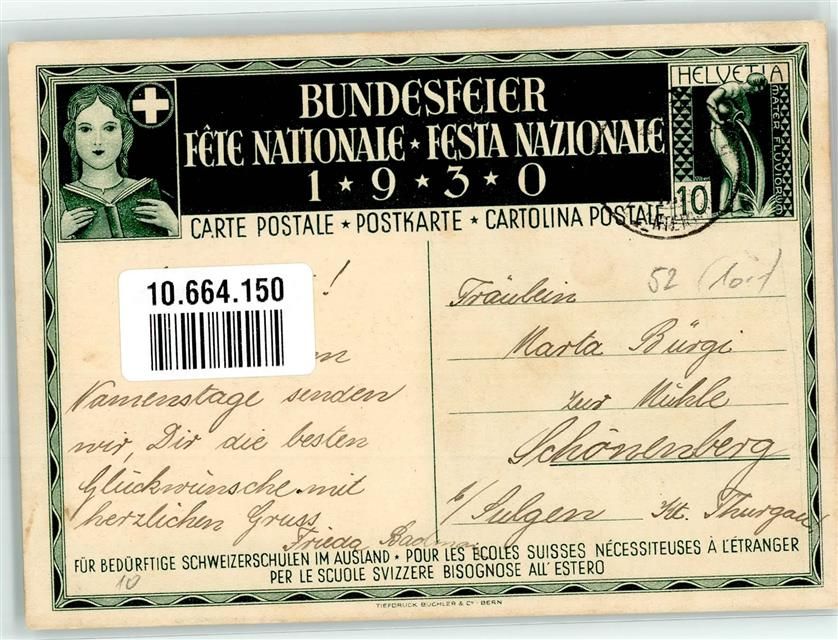 BUNDESFEIER
FÊTE NATIONALE ★ FESTA NAZIONALE
1 ★ 9 ★ 3 ★ 0
HELVETIA
MATER FLUVIORUM
10
CARTE POSTALE ★ POSTKARTE ★ CARTOLINA POSTALE
!
10.664.150
Namenstage senden
wir, Dir die besten
Glückwünsche mit
herzlichen Gruss
Frieda
52 (10.-)
Fräulein
Marta Bürgi
zur Mühle
Schönenberg
b/ Sulgen Kt. Thurgau
FÜR BEDÜRFTIGE SCHWEIZERSCHULEN IM AUSLAND ★ POUR LES ÉCOLES SUISSES NÉCESSITEUSES À L'ÉTRANGER
PER LE SCUOLE SVIZZERE BISOGNOSE ALL' ESTERO
10
TIEFDRUCK BÜCHLER & Co - BERN